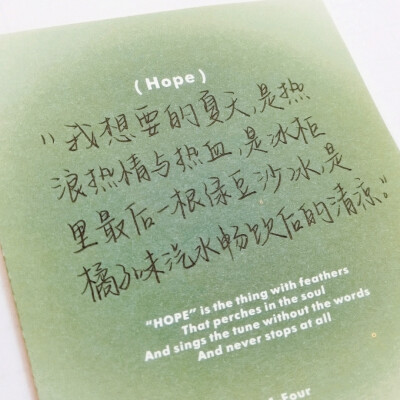 (Hope)
“我想要的夏天,是热
浪热情与热血,是冰柜
里最后一根绿豆沙冰,是
橘子味汽水畅饮后的清凉.”
"HOPE" is the thing with feathers
That perches in the soul
And sings the tune without the words
And never stops at all
Four